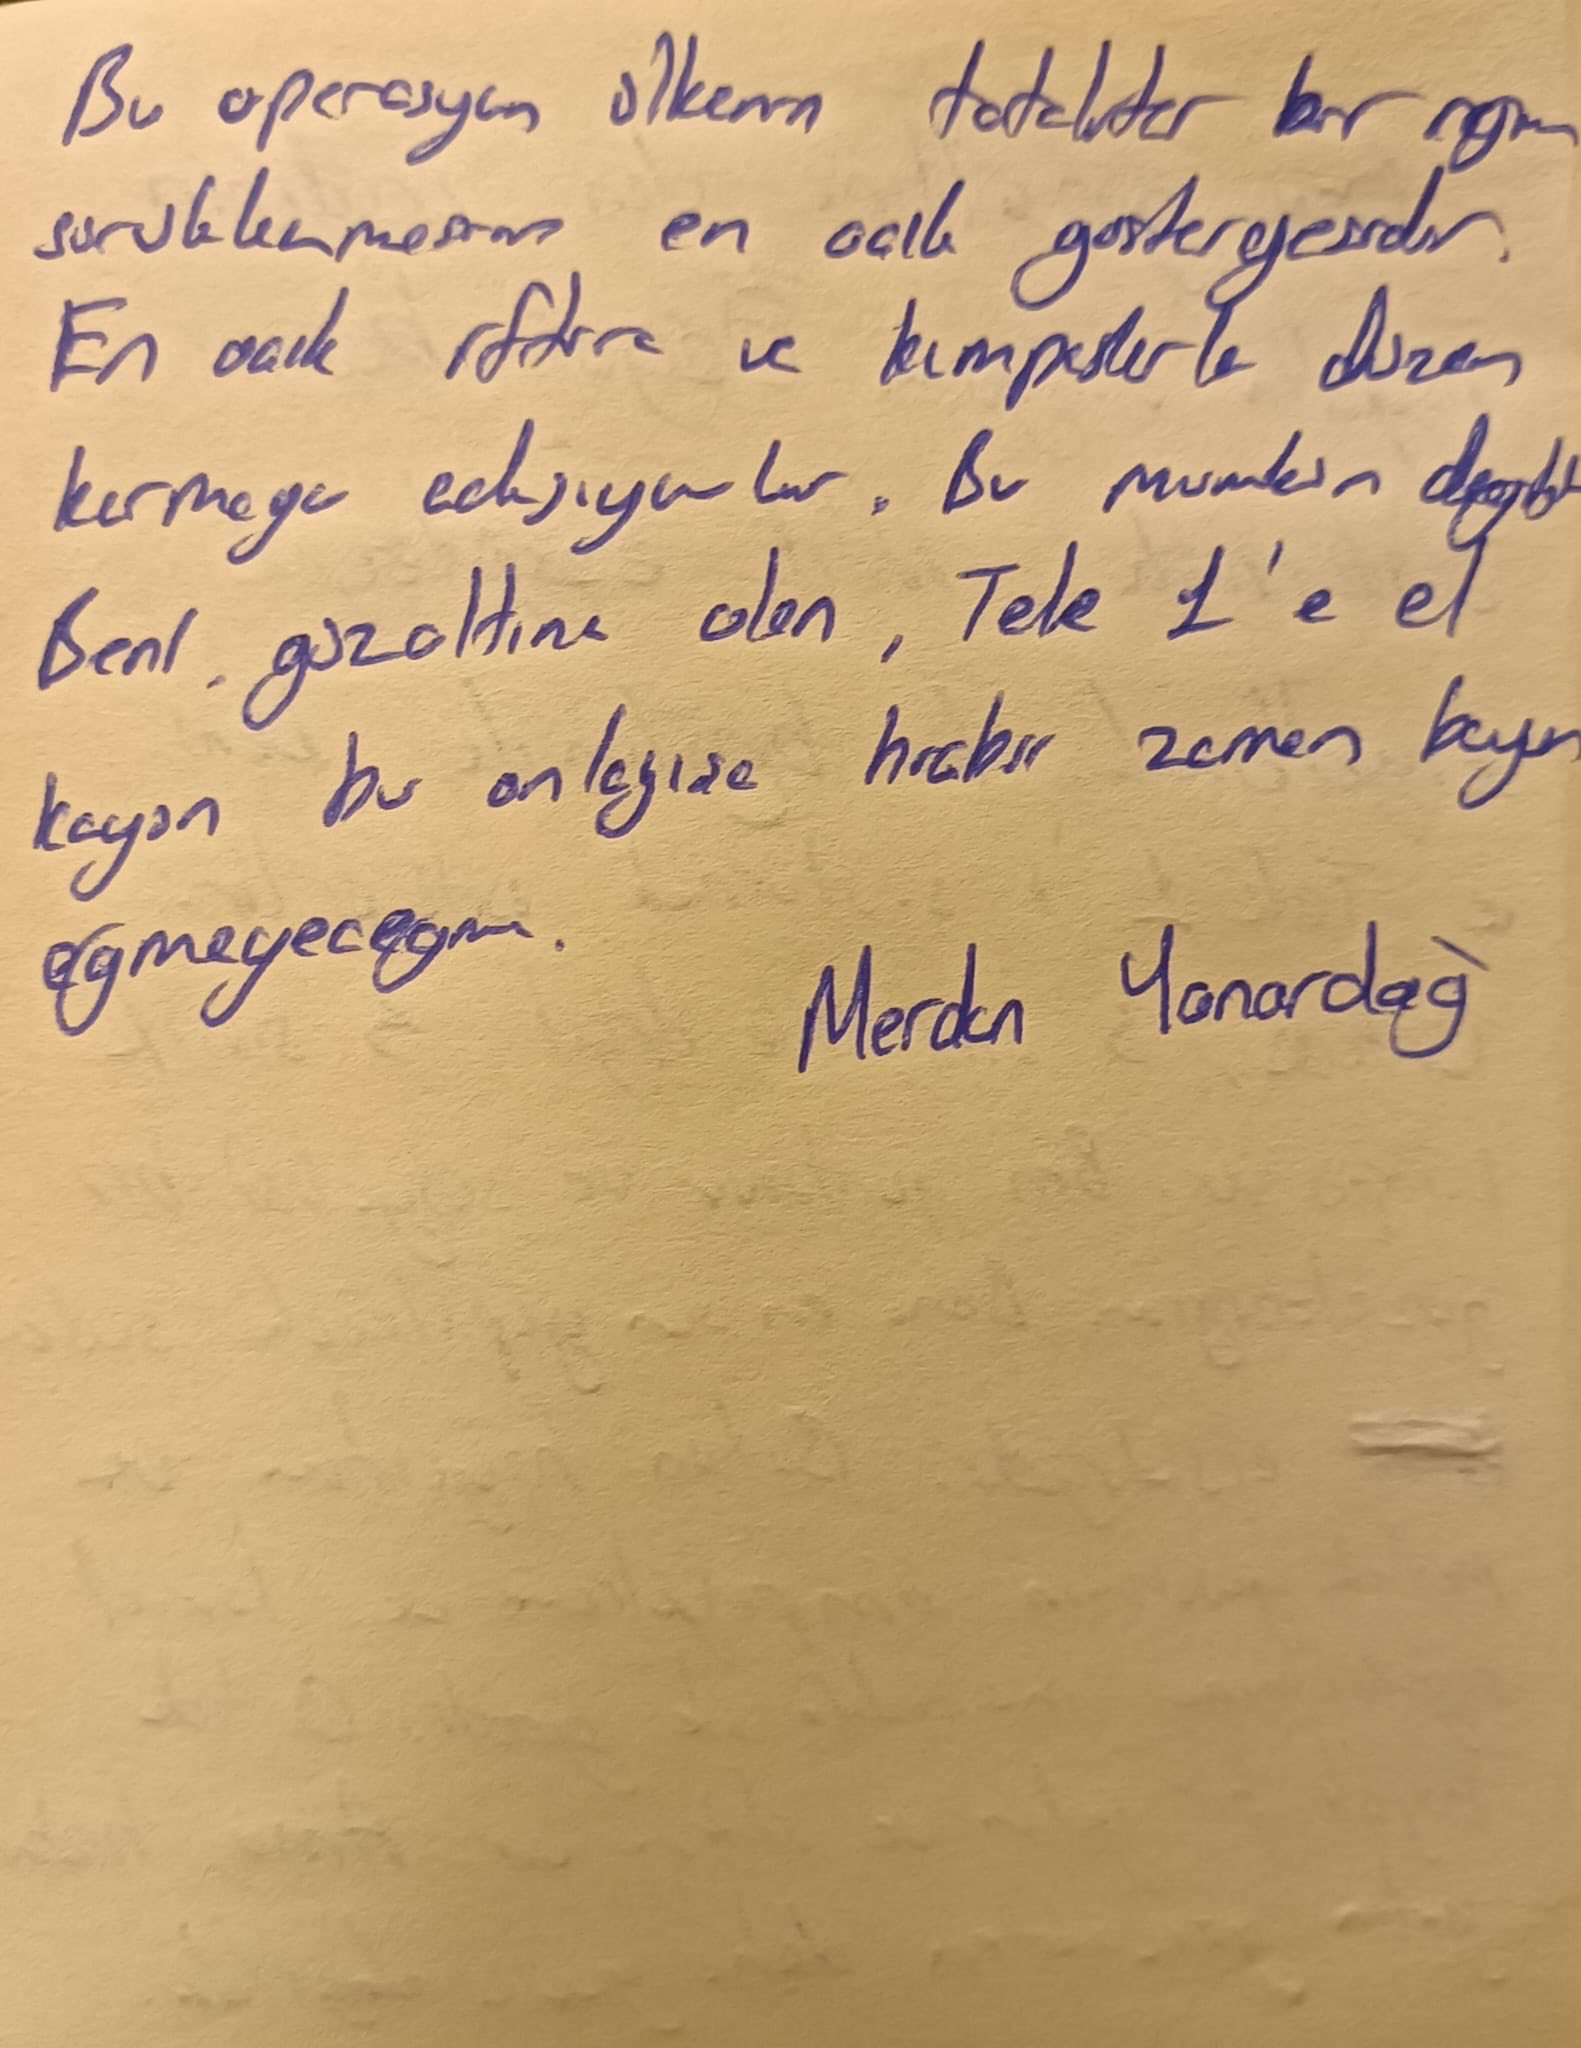 Bu operasyon ülkenin totaliter bir rejim
sürüklenmesinin en açık göstergesidir.
En açık iftira ve kumpaslarla düzen
kurmaya çalışıyorlar. Bu mümkün değildir
Beni, gözaltına alan, Tele 1'e el
koyan bu anlayışa hiçbir zaman boyun
eğmeyeceğim.
Merdan Yanardağ